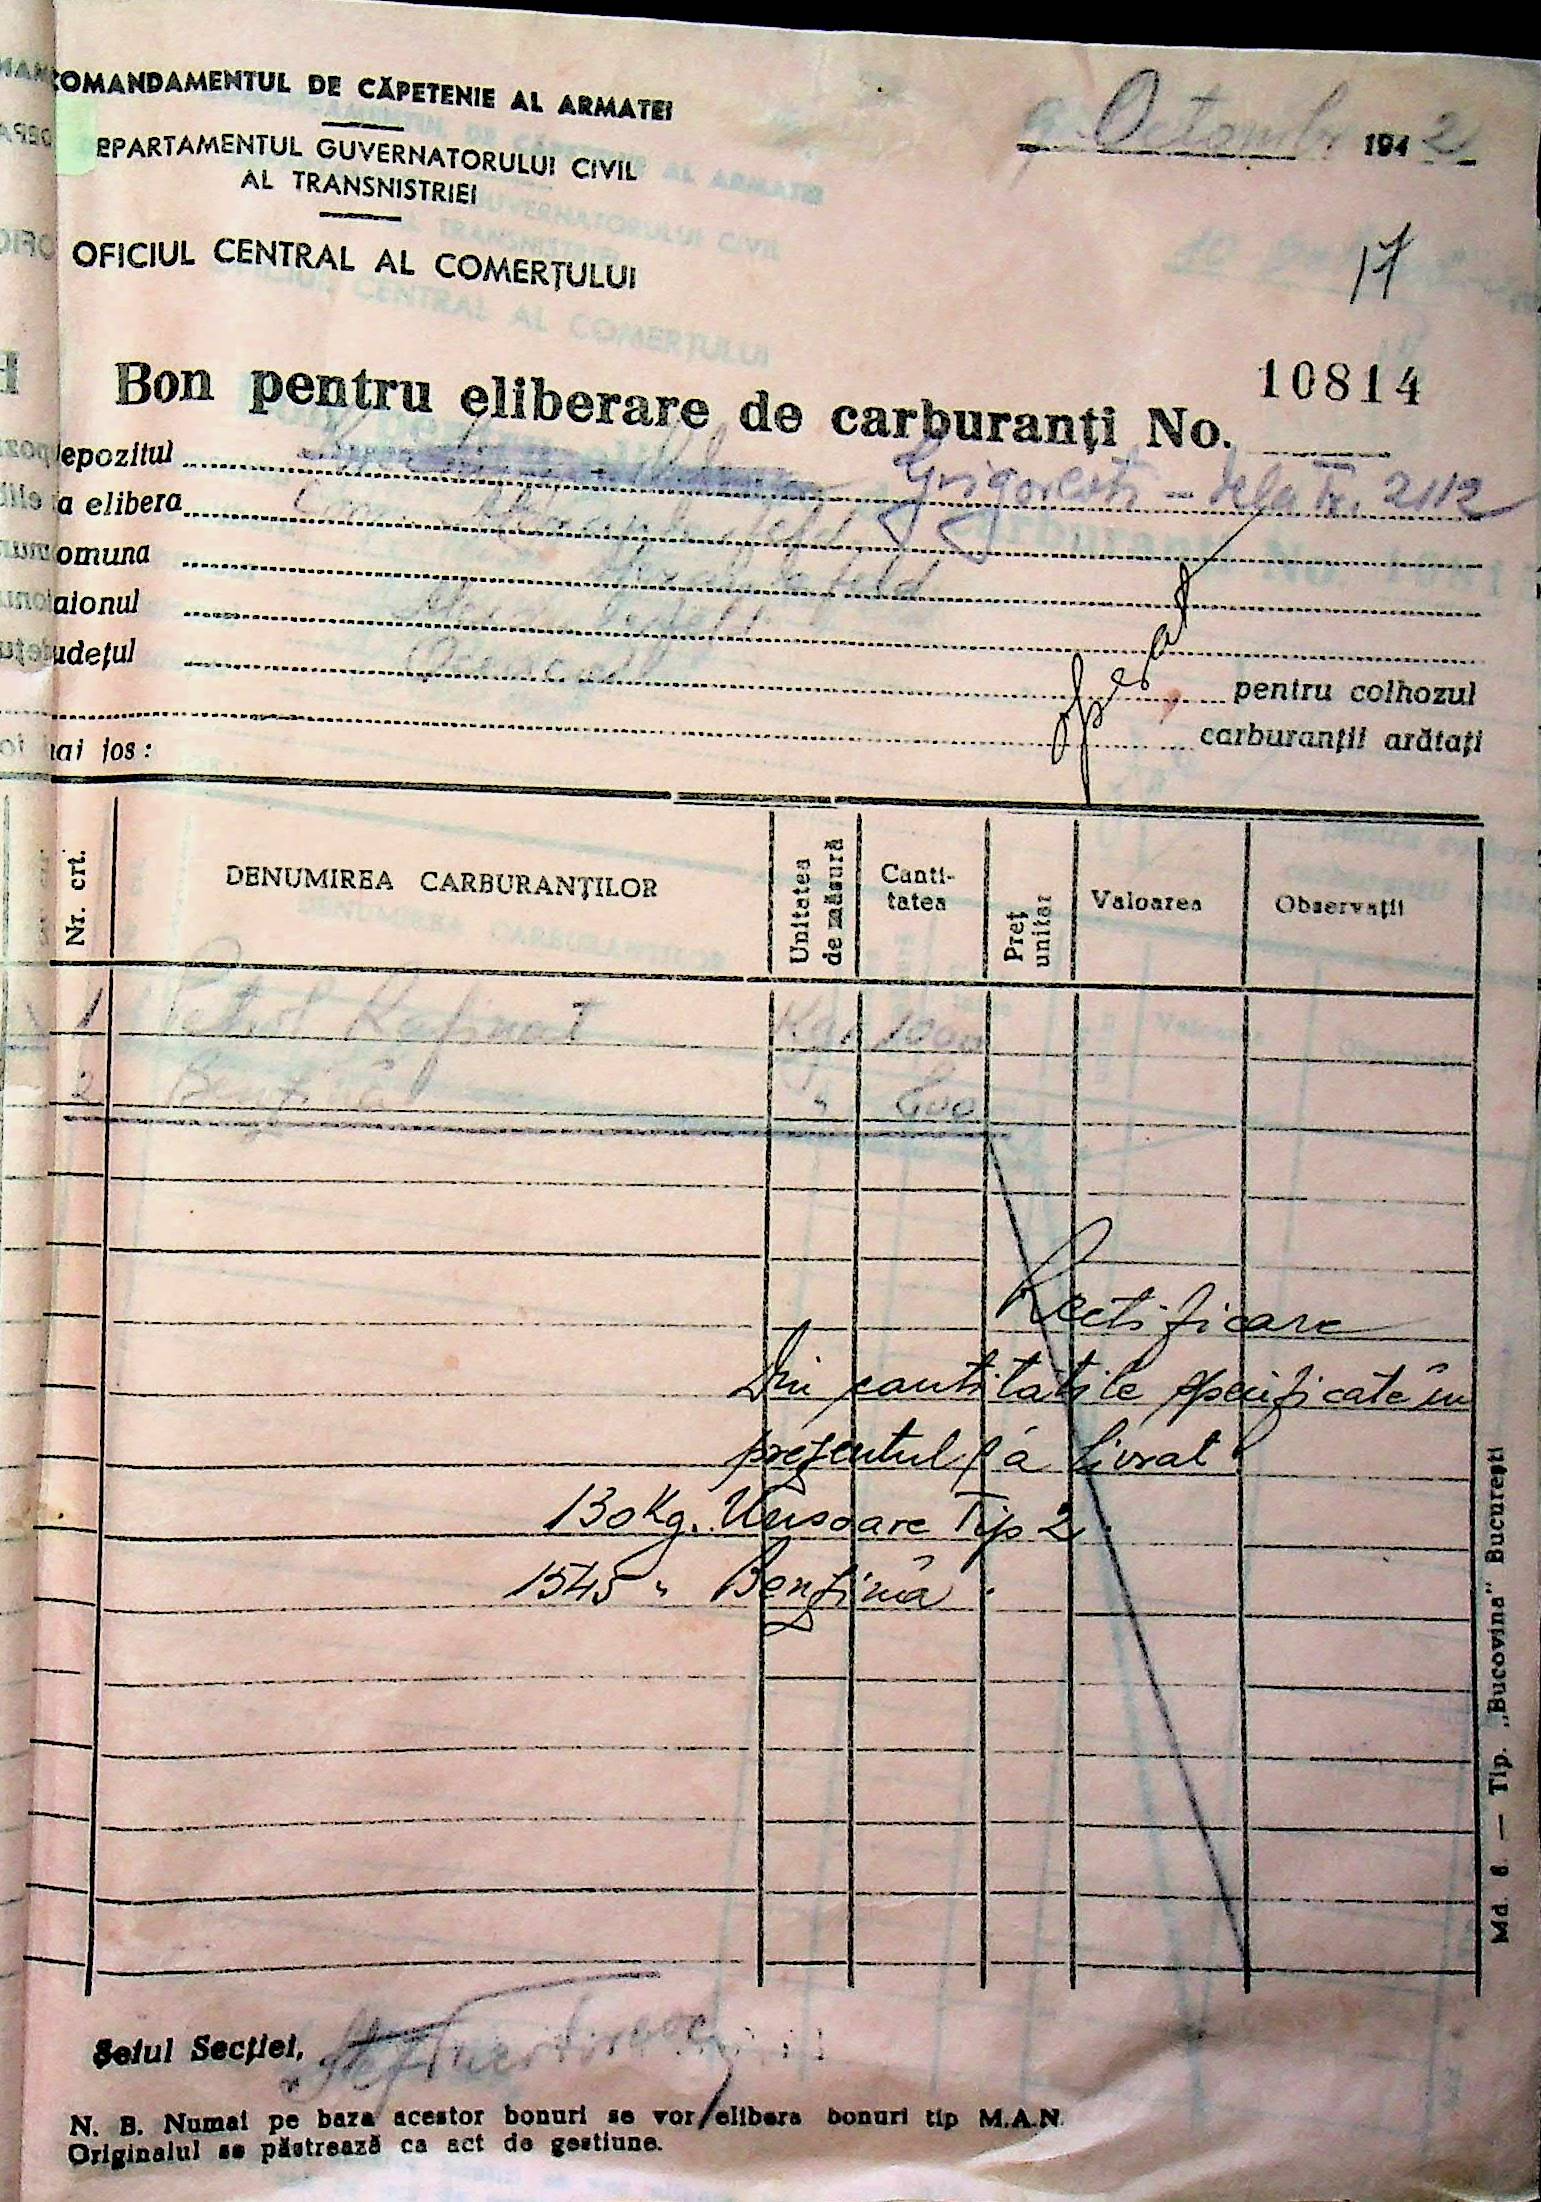 COMANDAMENTUL DE CĂPETENIE AL ARMATEI
EPARTAMENTUL GUVERNATORULUI CIVIL
AL TRANSNISTRIEI
OFICIUL CENTRAL AL COMERŢULUI
9 Octombr 1942
17
Bon pentru eliberare de carburanţi No. 10814
epozitul Grigorești - dela Tr. 2112
a elibera Com.
omuna
aionul
udeţul
operat
pentru colhozul
carburanţii arătaţi
ai jos:
Nr. crt.
DENUMIREA CARBURANŢILOR
Unitatea de măsură
Canti-
tatea
Preţ unitar
Valoarea
Observaţii
1 Petrol Rafinat Kgr. 1000
2 Benzină " 600
Rectificare
Din cantitățile specificate în
prezentul s'a livrat
130 Kg. Unsoare Tip 2
1545 " Benzină
Şeful Secţiei,
N. B. Numai pe baza acestor bonuri se vor elibera bonuri tip M.A.N.
Originalul se păstrează ca act de gestiune.
Md. 6. — Tip. „Bucovina" Bucureşti